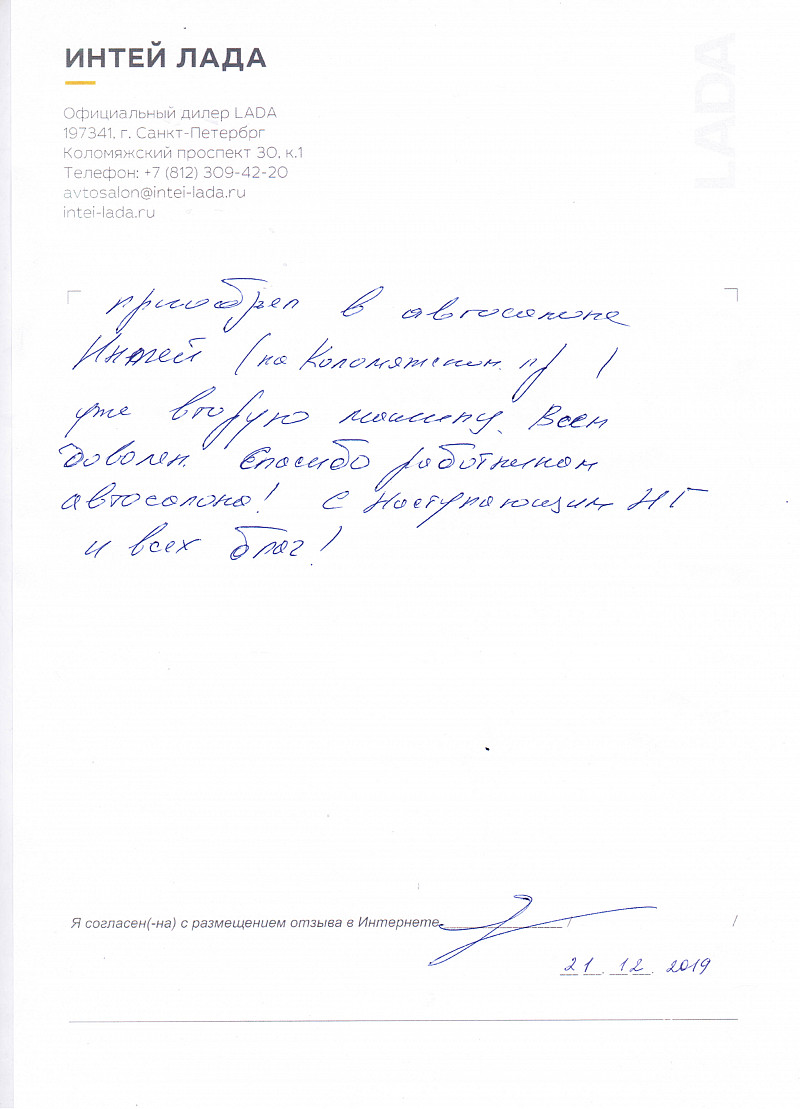 ИНТЕЙ ЛАДА
Официальный дилер LADA
197341, г. Санкт-Петербрг
Коломяжский проспект 30, к.1
Телефон: +7 (812) 309-42-20
avtosalon@intei-lada.ru
intei-lada.ru
LADA
приобрел в автосалоне
Интей (на Коломяжском пр)
уже вторую машину. Всем
доволен. Спасибо работникам
автосалона! С наступающим НГ
и всех благ!
Я согласен(-на) с размещением отзыва в Интернете / /
21. 12. 2019